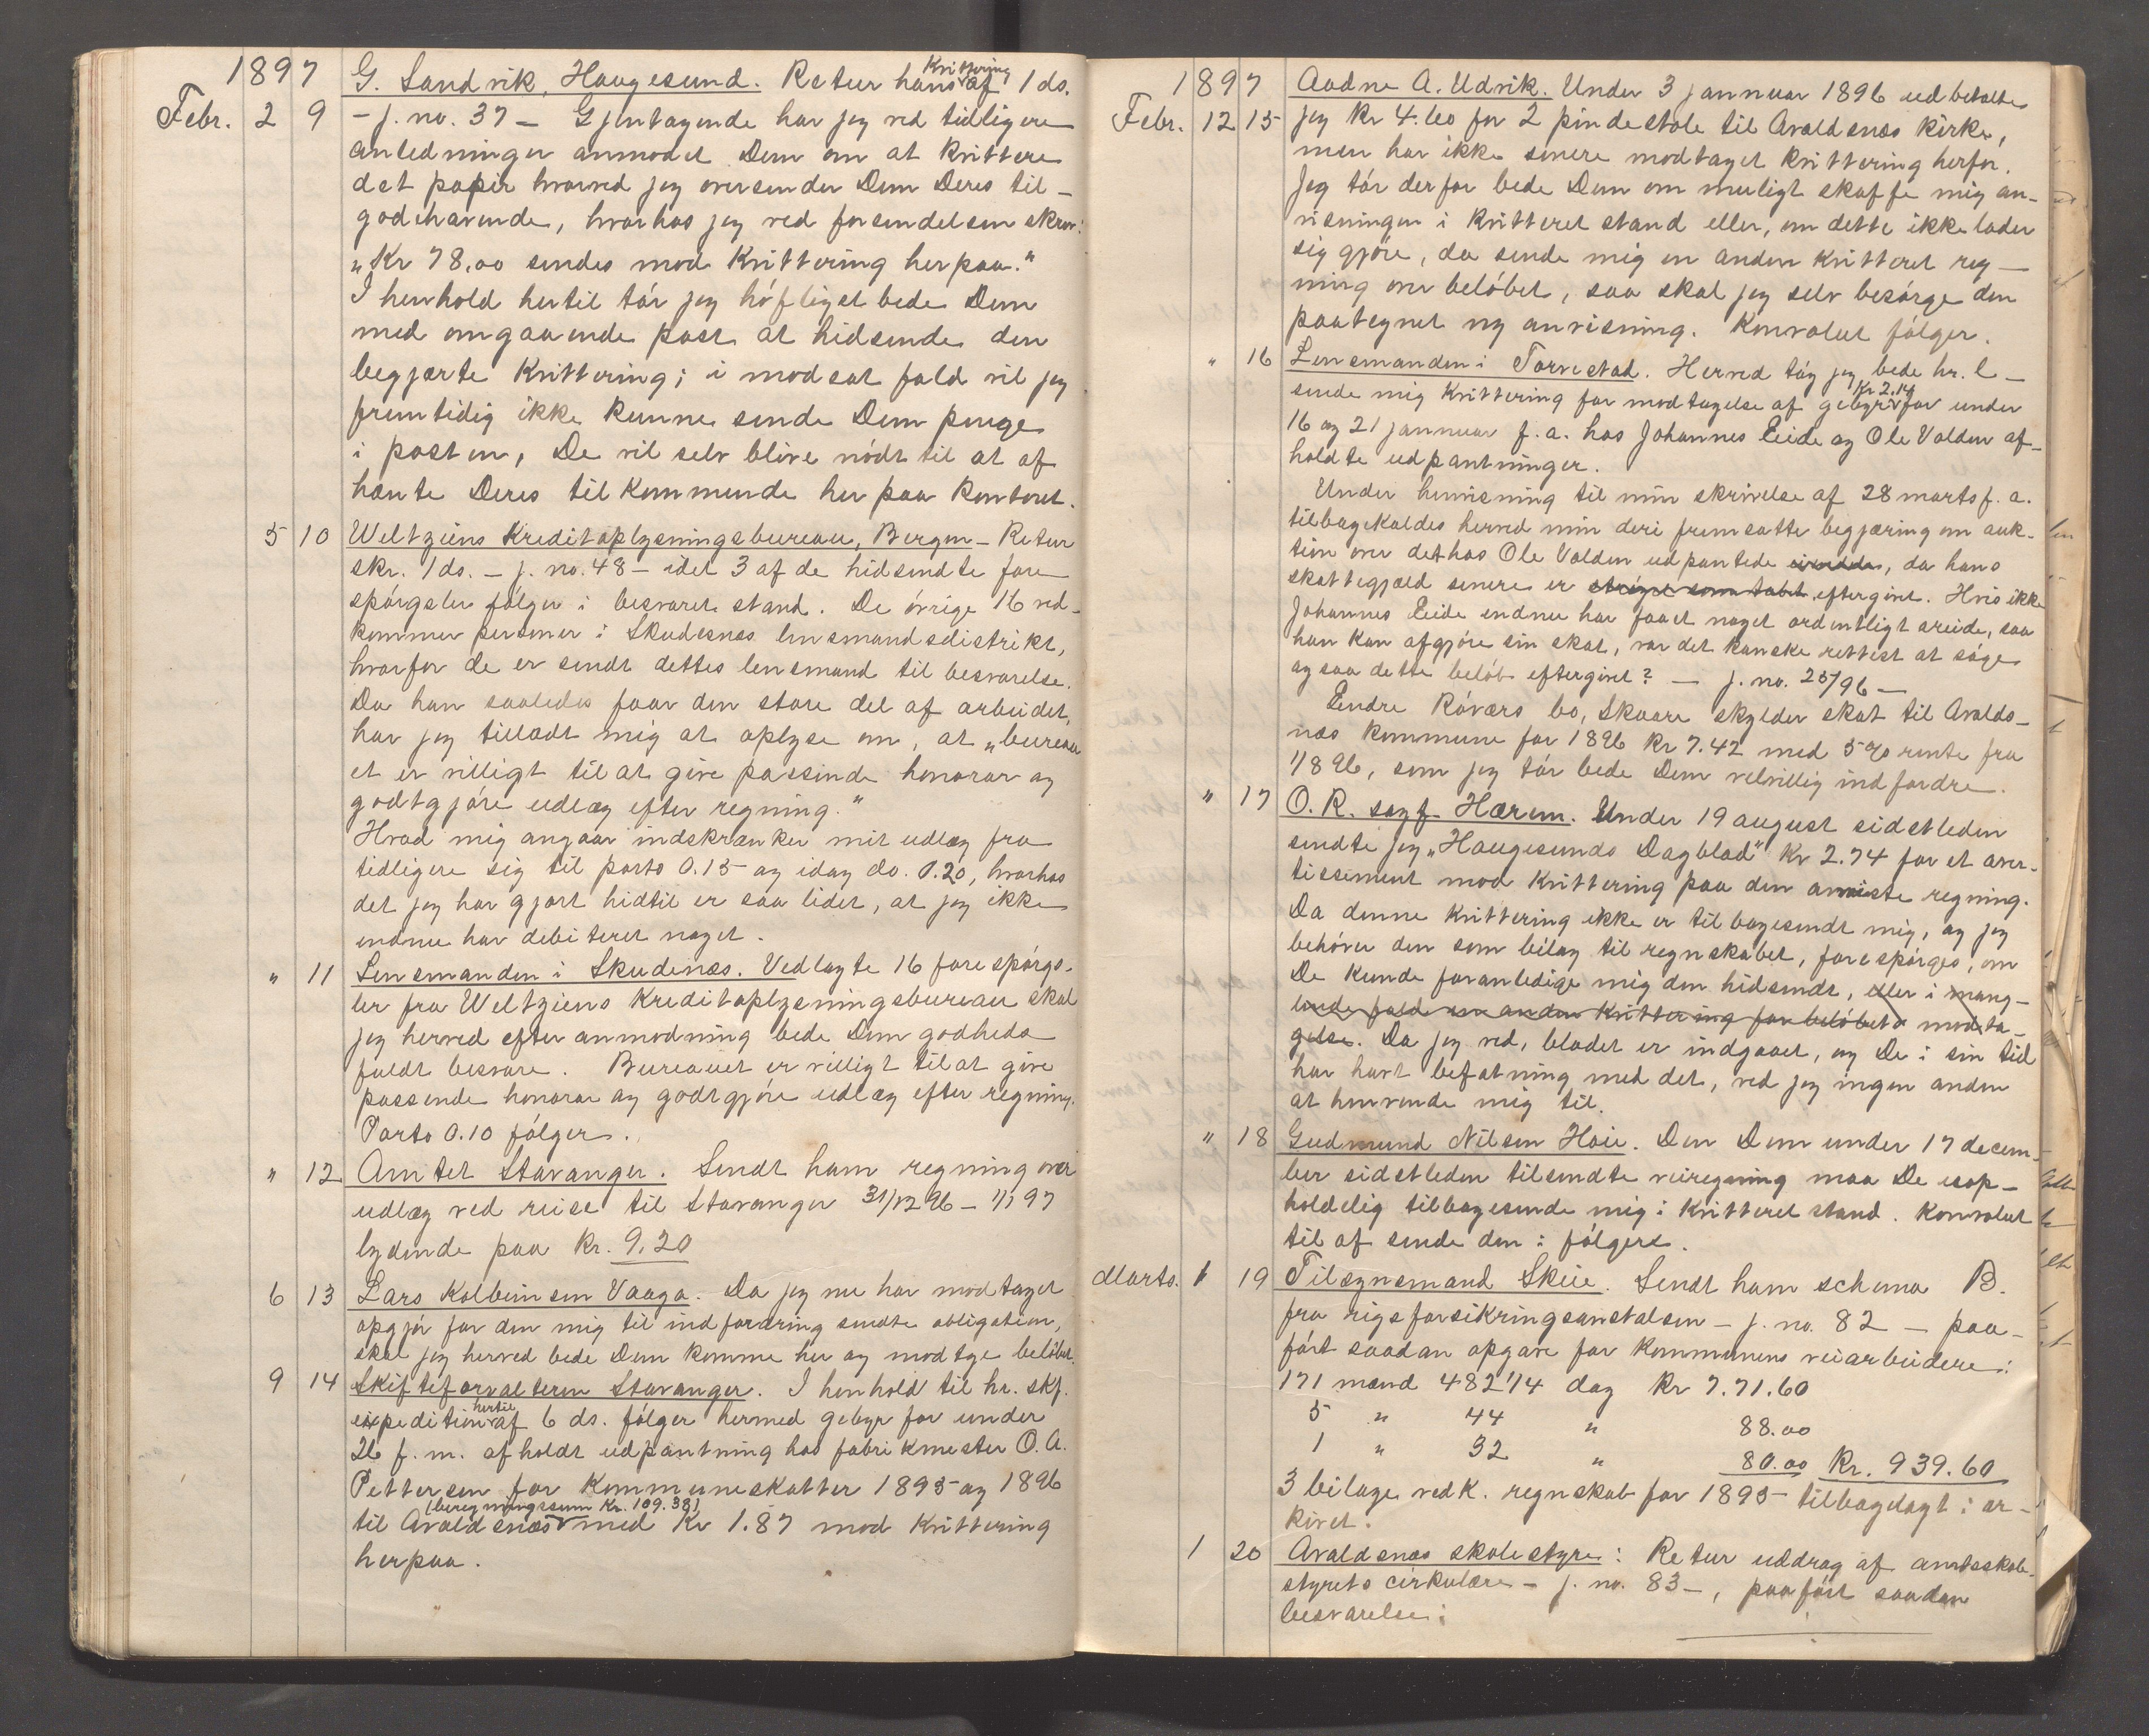 1897 G. Sandvik, Haugesund. Retur hans Kvittering af 1 ds.
Febr. 2 9 – j. no. 37 – Gjentagende har jeg ved tidligere
anledninger anmodet Dem om at kvittere
det papir hvorved jeg oversender Dem Deres til-
godehavende, hvorhos jeg ved forsendelsen skrev:
„Kr 78,00 sendes mod Kvittering herpaa."
I henhold hertil tør jeg høfligst bede Dem
med omgaaende post at hidsende den
begjærte Kvittering; i modsat fald vil jeg
fremtidig ikke kunne sende Dem penge
i posten, De vil selv blive nødt til at af
hænte Deres tilkommende her paa kontoret.
5 10 Weltziens Kreditoplysningsbureau, Bergen – Retur
skr. 1 ds. – j. no. 48 – idet 3 af de hidsendte fore
spørgsler følger i besvaret stand. De øvrige 16 ved-
kommer personer i Skudesnæs lensmandsdistrikt,
hvorfor de er sendt dettes lensmand til besvarelse.
Da han saaledes faar den store del af arbeidet,
har jeg tilladt mig at oplyse om, at „bureau
et er villigt til at give passende honorar og
godtgjøre udlæg efter regning."
Hvad mig angaar indskrænker mit udlæg fra
tidligere sig til porto 0.15 og idag do. 0.20, hvorhos
det jeg har gjort hidtil er saa lidet, at jeg ikke
endnu har debiteret noget.
„ 11 Lensmanden i Skudenæs. Vedlagte 16 forespørgs-
ler fra Weltziens Kreditoplysningsbureau skal
jeg herved efter anmodning bede Dem godheds
fuldt besvare. Bureauet er villigt til at give
passende honorar og godtgjøre udlæg efter regning.
Porto 0.10 følger.
„ 12 Amtet Stavanger. Sendt ham regning over
udlæg ved reise til Stavanger 31/12 96 – 1/1 97
lydende paa Kr. 9.20
6 13 Lars Kolbeinsen Vaaga. Da jeg nu har modtaget
opgjør for den mig til indfordring sendte obligation,
skal jeg herved bede Dem komme her og modtge beløbet.
9 14 Skifteforvalteren Stavanger. I henhold til hr. skf.
expedition hertil af 6 ds. følger hermed gebyr for under
26 f. m. afholdt udpantning hos fabrikmester O. A.
Pettersen for Kommuneskatter 1895 og 1896
(beregningssum Kr. 109.38)
til Avaldsnæs med Kr 1.87 mod Kvittering
herpaa.
1897 Aadne A. Udvik. Under 3 jannuar 1896 udbetalte
Febr. 12 15 jeg Kr 4.60 for 2 pindestole til Avaldsnæs kirke,
men har ikke senere modtaget kvittering herfor.
Jeg tør derfor bede Dem om muligt skaffe mig an-
visningen i kvitteret stand eller, om dette ikke lader
sig gjøre, da sende mig en anden kvitteret reg-
ning over beløbet, saa skal jeg selv besørge den
paategnet ny anvisning. Konvolut følger.
„ 16 Lensmanden i Torvestad. Herved tør jeg bede hr. l –
sende mig Kvittering for modtagelse af gebyr Kr 2.14 for under
16 og 21 jannuar f. a. hos Johannes Eide og Ole Valden af-
holdte udpantninger.
Under henvisning til min skrivelse af 28 marts f. a.
tilbagekaldes herved min deri fremsatte begjæring om auk-
tion over det hos Ole Valden udpantede, da hans
skattegjæld senere er strøget som tabt eftergivet. Hvis ikke
Johannes Eide endnu har faaet noget ordentligt areide, saa
han kan afgjøre sin skat, var det kanske rettest at søge
ogsaa dette beløb eftergivet? – j. no. 25/96 –
Endre Røværs bo, Skaare skylder skat til Avalds-
næs kommune for 1896 Kr 7.42 med 5% rente fra
1/8 96, som jeg tør bede Dem velvillig indfordre.
„ 17 O. R. sagf. Hærem. Under 19 august sidstleden
sendte jeg „Haugesunds Dagblad" Kr 2.74 for et aver-
tissement mod Kvittering paa den anviste regning.
Da denne Kvittering ikke er tilbagesendt mig, og jeg
behøver den som bilag til regnskabet, forespørges, om
De kunde foranledige mig den hidsendt, eller i mang-
lende fald en anden Kvittering for beløbets modta-
gelse. Da jeg ved, bladet er indgaaet, og De i sin tid
har havt befatning med det, ved jeg ingen anden
at henvende mig til.
„ 18 Gudmund Nilsen Høie. Den Dem under 17 decem-
ber sidstleden tilsendte veiregning maa De uop-
holdelig tilbagesende mig i kvitteret stand. Konvolut
til af sende den i følgere.
Marts. 1 19 Tilsynsmand Skeie. Sendt ham schema B.
fra rigsforsikringsanstalsen – j. no. 82 – paa-
ført saadan opgave for kommunens veiarbeidere:
171 mand 482 1/4 dag Kr 7.71.60
5 „ 44 „ 88.00
1 „ 32 „ 80.00 Kr. 939.60
3 bilage vedk. regnskab for 1895 tilbagelagt i ar-
kivet.
1 20 Avaldsnæs skolestyre: Retur uddrag af amtsskole-
styrets cirkulære – j. no. 83 –, paaført saadan
besvarelse: